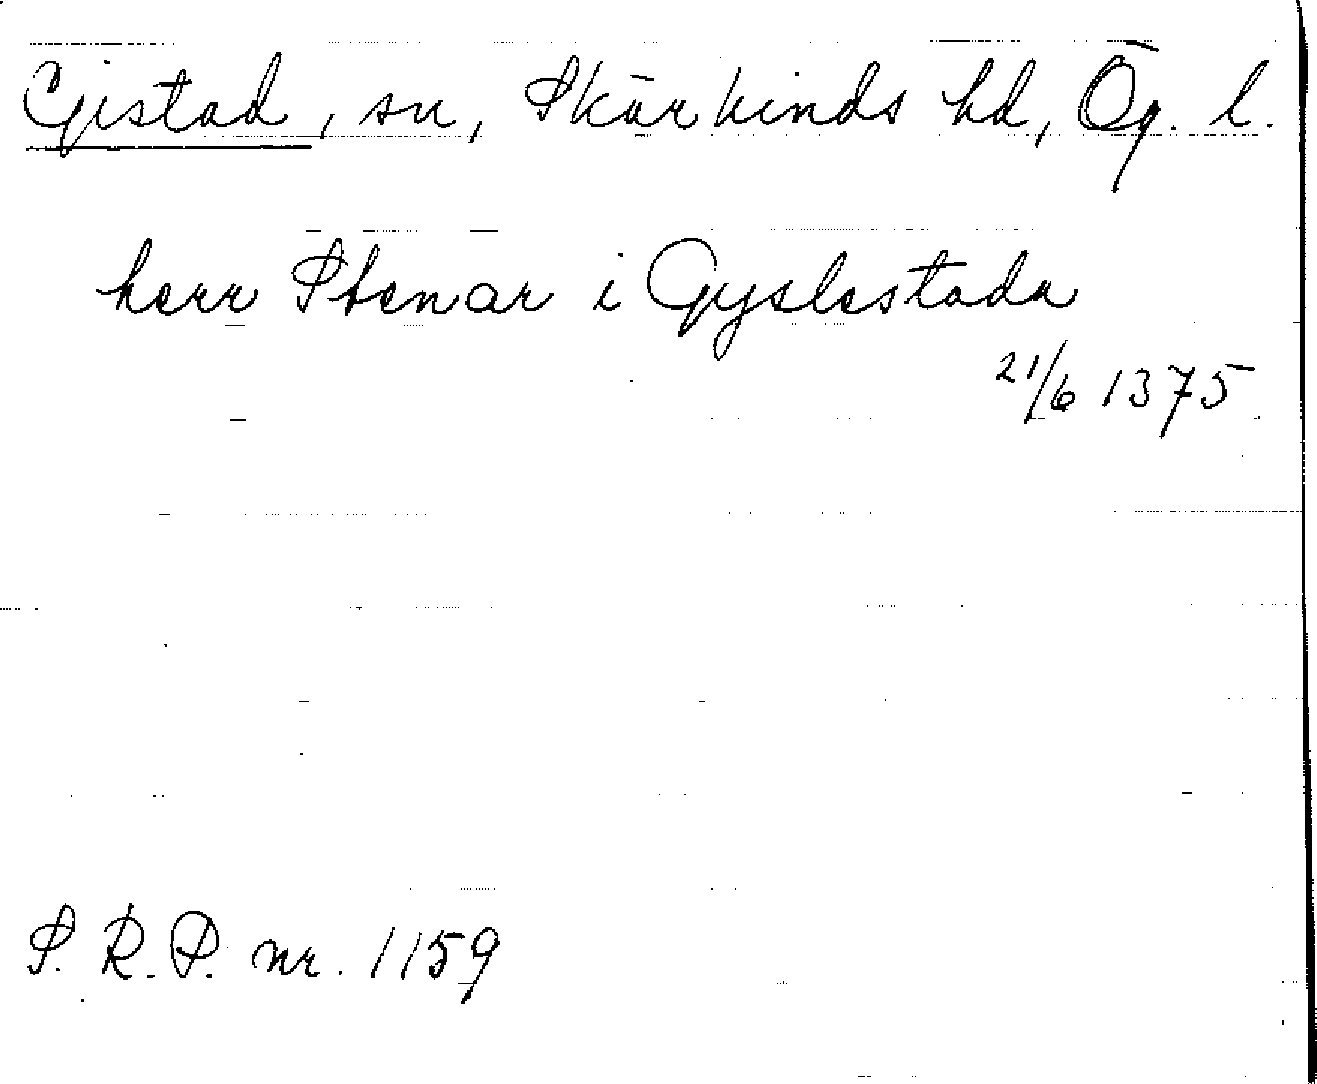 Gistad, sn, Skärkinds hd, Ög. l.
herr Stenar i Gyslestada
21/6 1375
S. R. P. nr. 1159